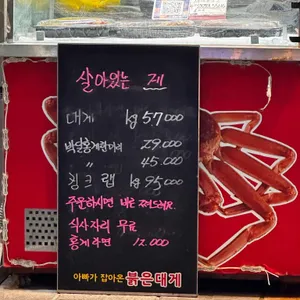 살아있는 게
대게 kg 57.000
29.000
〃 45.000
킹크랩 kg 95.000
주문하시면 바로 쪄드려요.
식사자리 무료
홍게라면 12.000
아빠가 잡아온 붉은대게